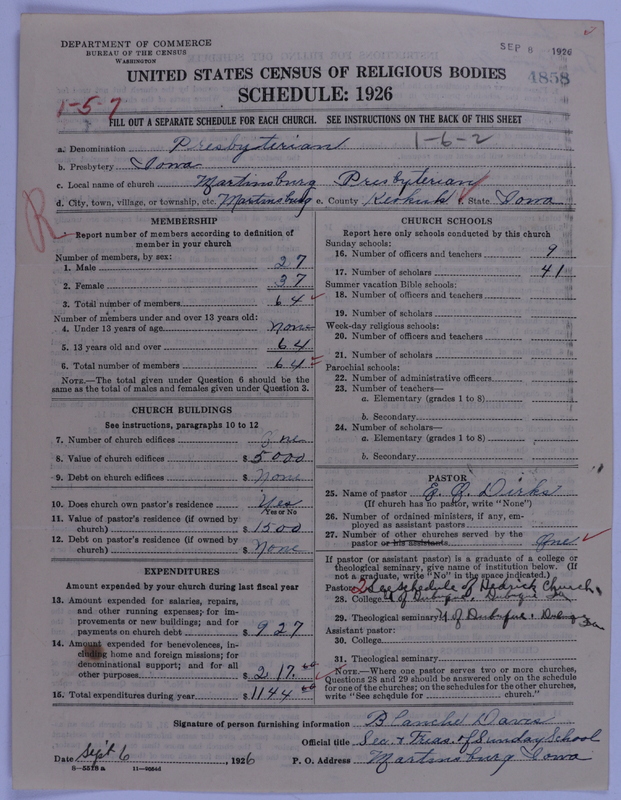 DEPARTMENT OF COMMERCE
BUREAU OF THE CENSUS
WASHINGTON
SEP 8 1926
4858
UNITED STATES CENSUS OF RELIGIOUS BODIES
SCHEDULE: 1926
1-5-7
FILL OUT A SEPARATE SCHEDULE FOR EACH CHURCH. SEE INSTRUCTIONS ON THE BACK OF THIS SHEET
1-6-2
a. Denomination Presbyterian
b. Presbytery Iowa
c. Local name of church Martinsburg Presbyterian
d. City, town, village, or township, etc. Martinsburg e. County Keokuk f. State Iowa
R
MEMBERSHIP
Report number of members according to definition of member in your church
Number of members, by sex:
1. Male 27
2. Female 37
3. Total number of members 64
Number of members under and over 13 years old:
4. Under 13 years of age none
5. 13 years old and over 64
6. Total number of members 64
NOTE.—The total given under Question 6 should be the same as the total of males and females given under Question 3.
CHURCH BUILDINGS
See instructions, paragraphs 10 to 12
7. Number of church edifices One
8. Value of church edifices $ 5000
9. Debt on church edifices $ None
10. Does church own pastor's residence Yes
Yes or No
11. Value of pastor's residence (if owned by church) $ 1500
12. Debt on pastor's residence (if owned by church) $ None
EXPENDITURES
Amount expended by your church during last fiscal year
13. Amount expended for salaries, repairs, and other running expenses; for improvements or new buildings; and for payments on church debt $ 927
14. Amount expended for benevolences, including home and foreign missions; for denominational support; and for all other purposes $ 217.00
15. Total expenditures during year $ 1144.00
CHURCH SCHOOLS
Report here only schools conducted by this church
Sunday schools:
16. Number of officers and teachers 9
17. Number of scholars 41
Summer vacation Bible schools:
18. Number of officers and teachers
19. Number of scholars
Week-day religious schools:
20. Number of officers and teachers
21. Number of scholars
Parochial schools:
22. Number of administrative officers
23. Number of teachers—
a. Elementary (grades 1 to 8)
b. Secondary
24. Number of scholars—
a. Elementary (grades 1 to 8)
b. Secondary
PASTOR
25. Name of pastor E. R. Dirks
(If church has no pastor, write "None")
26. Number of ordained ministers, if any, employed as assistant pastors
27. Number of other churches served by the pastor or his assistants One
If pastor (or assistant pastor) is a graduate of a college or theological seminary, give name of institution below. (If not a graduate, write "No" in the space indicated.)
Pastor: See schedule of Hedrick Church
28. College U of Dubuque, Dubuque Ia
29. Theological seminary U of Dubuque, Dubuq Ia
Assistant pastor:
30. College
31. Theological seminary
NOTE.—Where one pastor serves two or more churches, Questions 28 and 29 should be answered only on the schedule for one of the churches; on the schedules for the other churches, write "See schedule for church."
Signature of person furnishing information Blanche Davis
Official title Sec. & Treas. of Sunday School
Date Sept 6, 1926 P. O. Address Martinsburg Iowa
8—5518 a 11—9884d